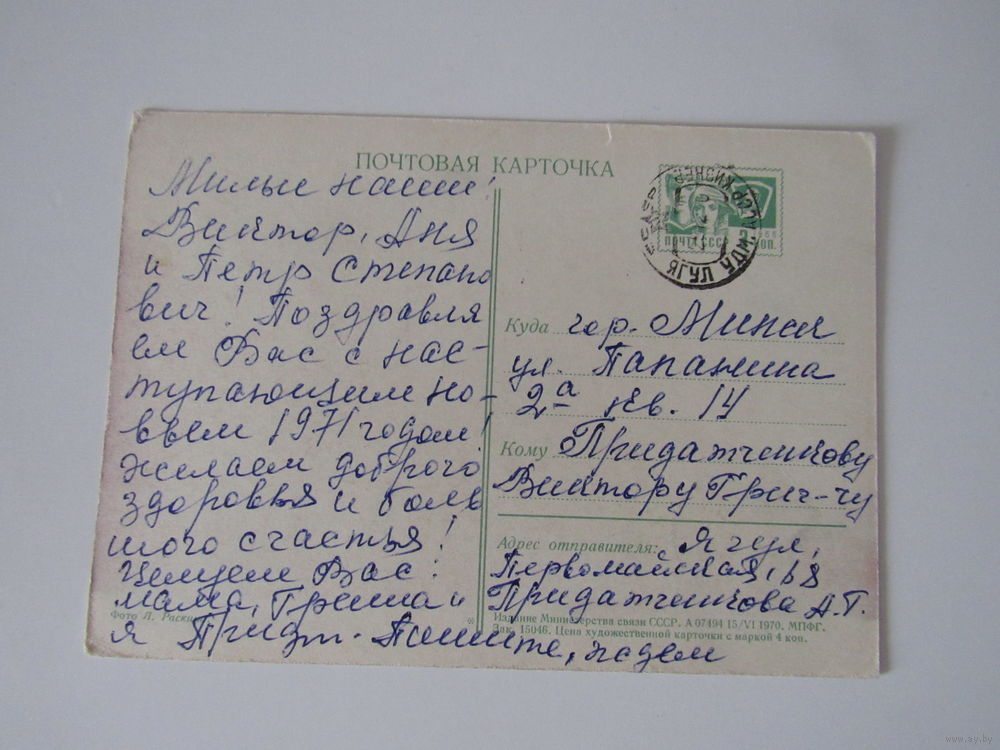 ПОЧТОВАЯ КАРТОЧКА
Милые наши!
Виктор, Аня
и Петр Степано
вич! Поздравля
ем Вас с нас-
тупающим но-
вым 1971 годом!
Желаем доброго
здоровья и боль
шого счастья!
Целуем Вас:
мама, Гриша и
я Придт. Пишите, ждем
Фото Л. Раскина
ПОЧТА СССР
КОП.
Куда гор. Минск
ул. Папанина
2а кв. 14
Кому Придатченкову
Виктору Григ-чу
Адрес отправителя:
Первомайская, 68
Придатченкова А.Т.
Издание Министерства связи СССР. А 07494 15/VI 1970. МПФГ.
Зак. 15046. Цена художественной карточки с маркой 4 коп.
www.ay.by